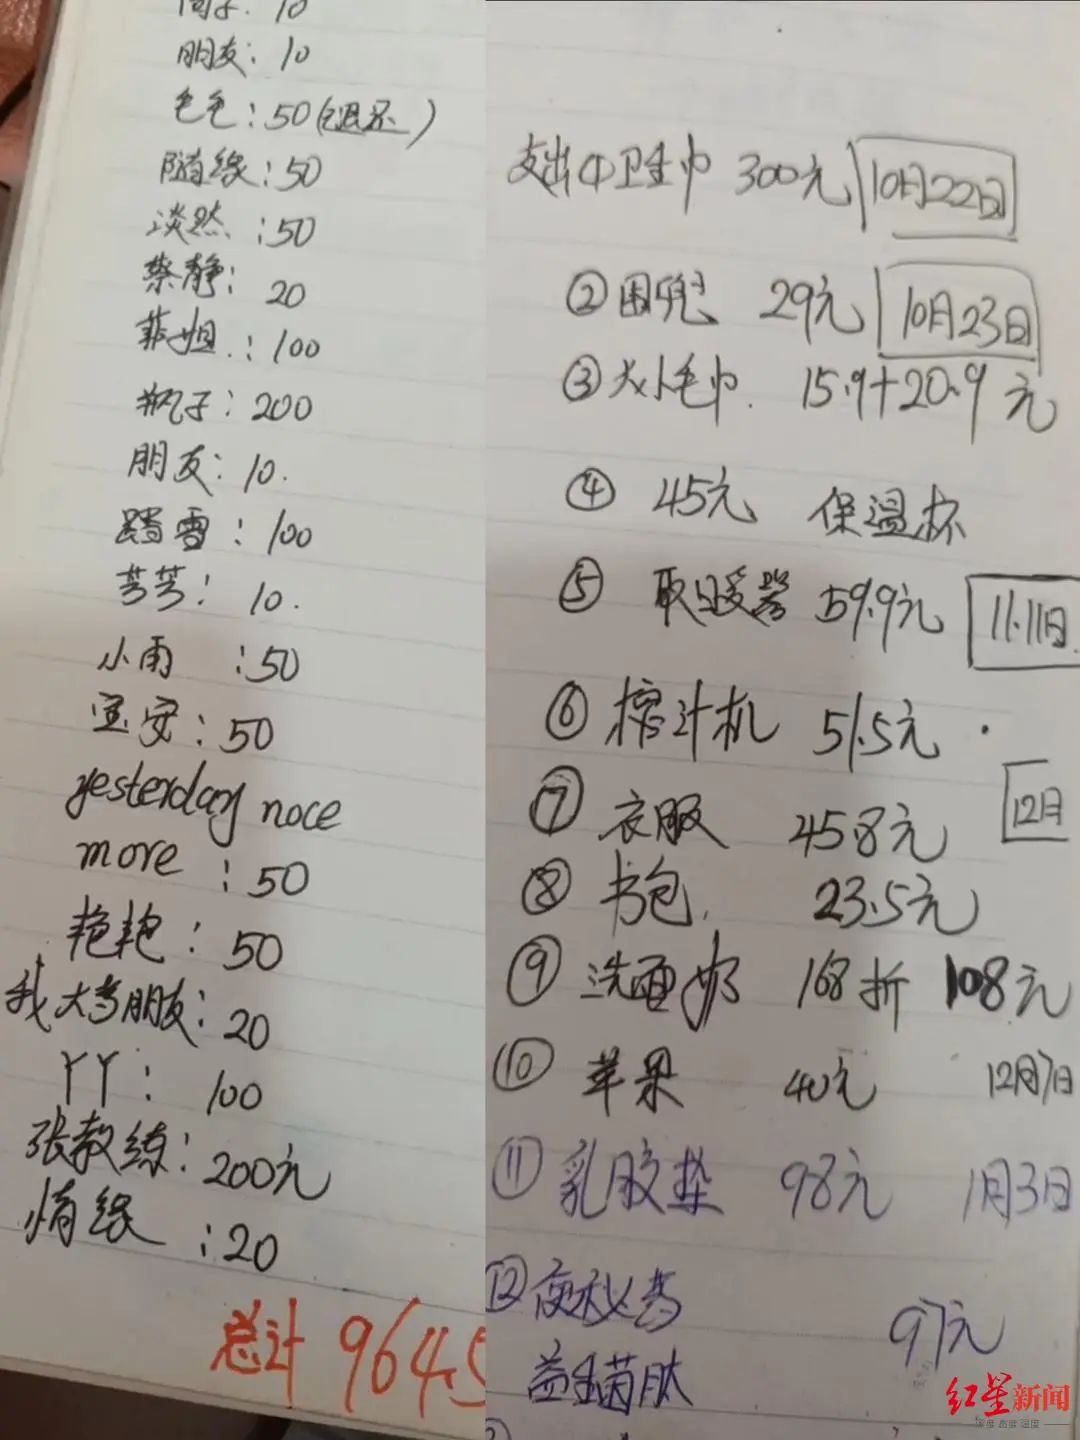 10
朋友: 10
毛毛: 50(已退还)
随缘: 50
淡然: 50
蔡静: 20
菲姐: 100
瓶子: 200
朋友: 10.
踏雪: 100
芳芳: 10.
小雨: 50
宝安: 50
yesterday noce
more: 50
艳艳: 50
我大哥朋友: 20
丫丫: 100
张教练: 200元
情缘: 20
总计 9645
支出① 卫生巾 300元 10月22日
② 围兜 29元 10月23日
③ 大小毛巾. 15.9+20.9元
④ 45元 保温杯
⑤ 取暖器 59.9元 11.11日
⑥ 榨汁机 51.5元
⑦ 衣服 458元 12月
⑧ 书包. 23.5元
⑨ 洗面奶 168折 108元
⑩ 苹果 40元 12月7日
⑪ 乳胶垫 98元 1月3日
⑫ 便秘
益生菌肽 97元
红星新闻
深度 态度 温度